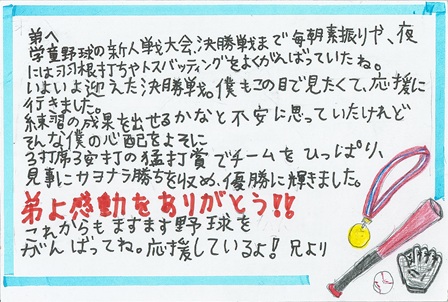 弟へ
学童野球の新人戦大会、決勝戦まで毎朝素振りや、夜
には羽根打ちやトスバッティングをよくがんばっていたね。
いよいよ迎えた決勝戦。僕もこの目で見たくて、応援に
行きました。
練習の成果を出せるかなと不安に思っていたけれど
そんな僕の心配をよそに
3打席3安打の猛打賞でチームをひっぱり、
見事にサヨナラ勝ちを収め、優勝に輝きました。
弟よ感動をありがとう!!
これからもますます野球を
がんばってね。応援しているよ!兄より